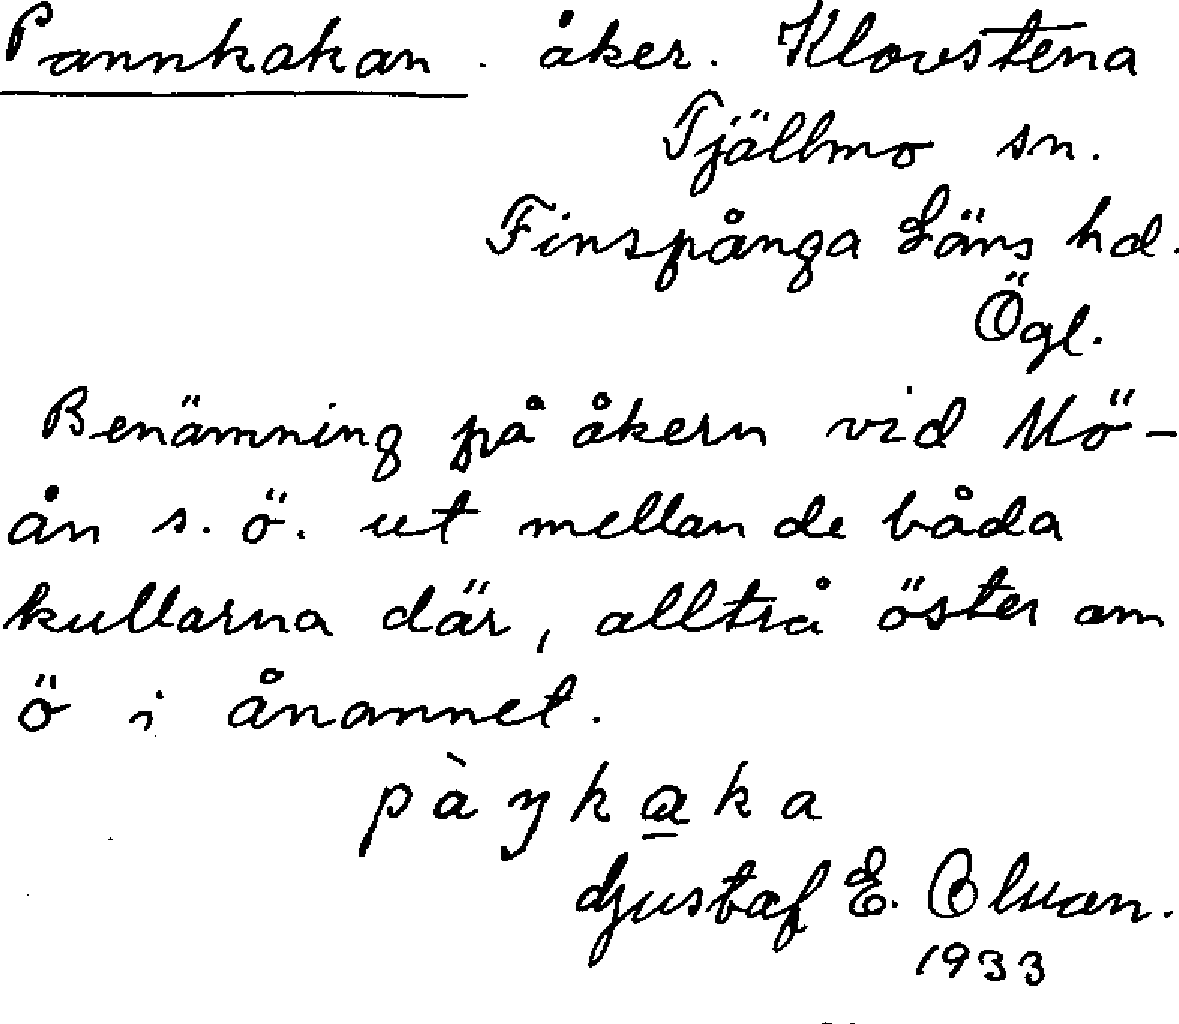 Pannkakan. åker. Klovstena
Tjällmo sn.
Finspånga Läns hd.
Ögl.
Benämning på åkern vid Mö-
ån s. ö. ut mellan de båda
kullarna där, alltså öster om
ö i ånamnet.
pàŋkaka
Gustaf E.
1933